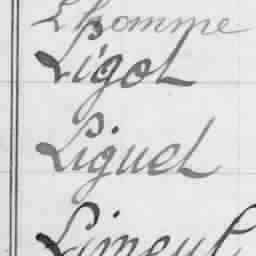 Lhomme
Ligot
Liguel
Limeul